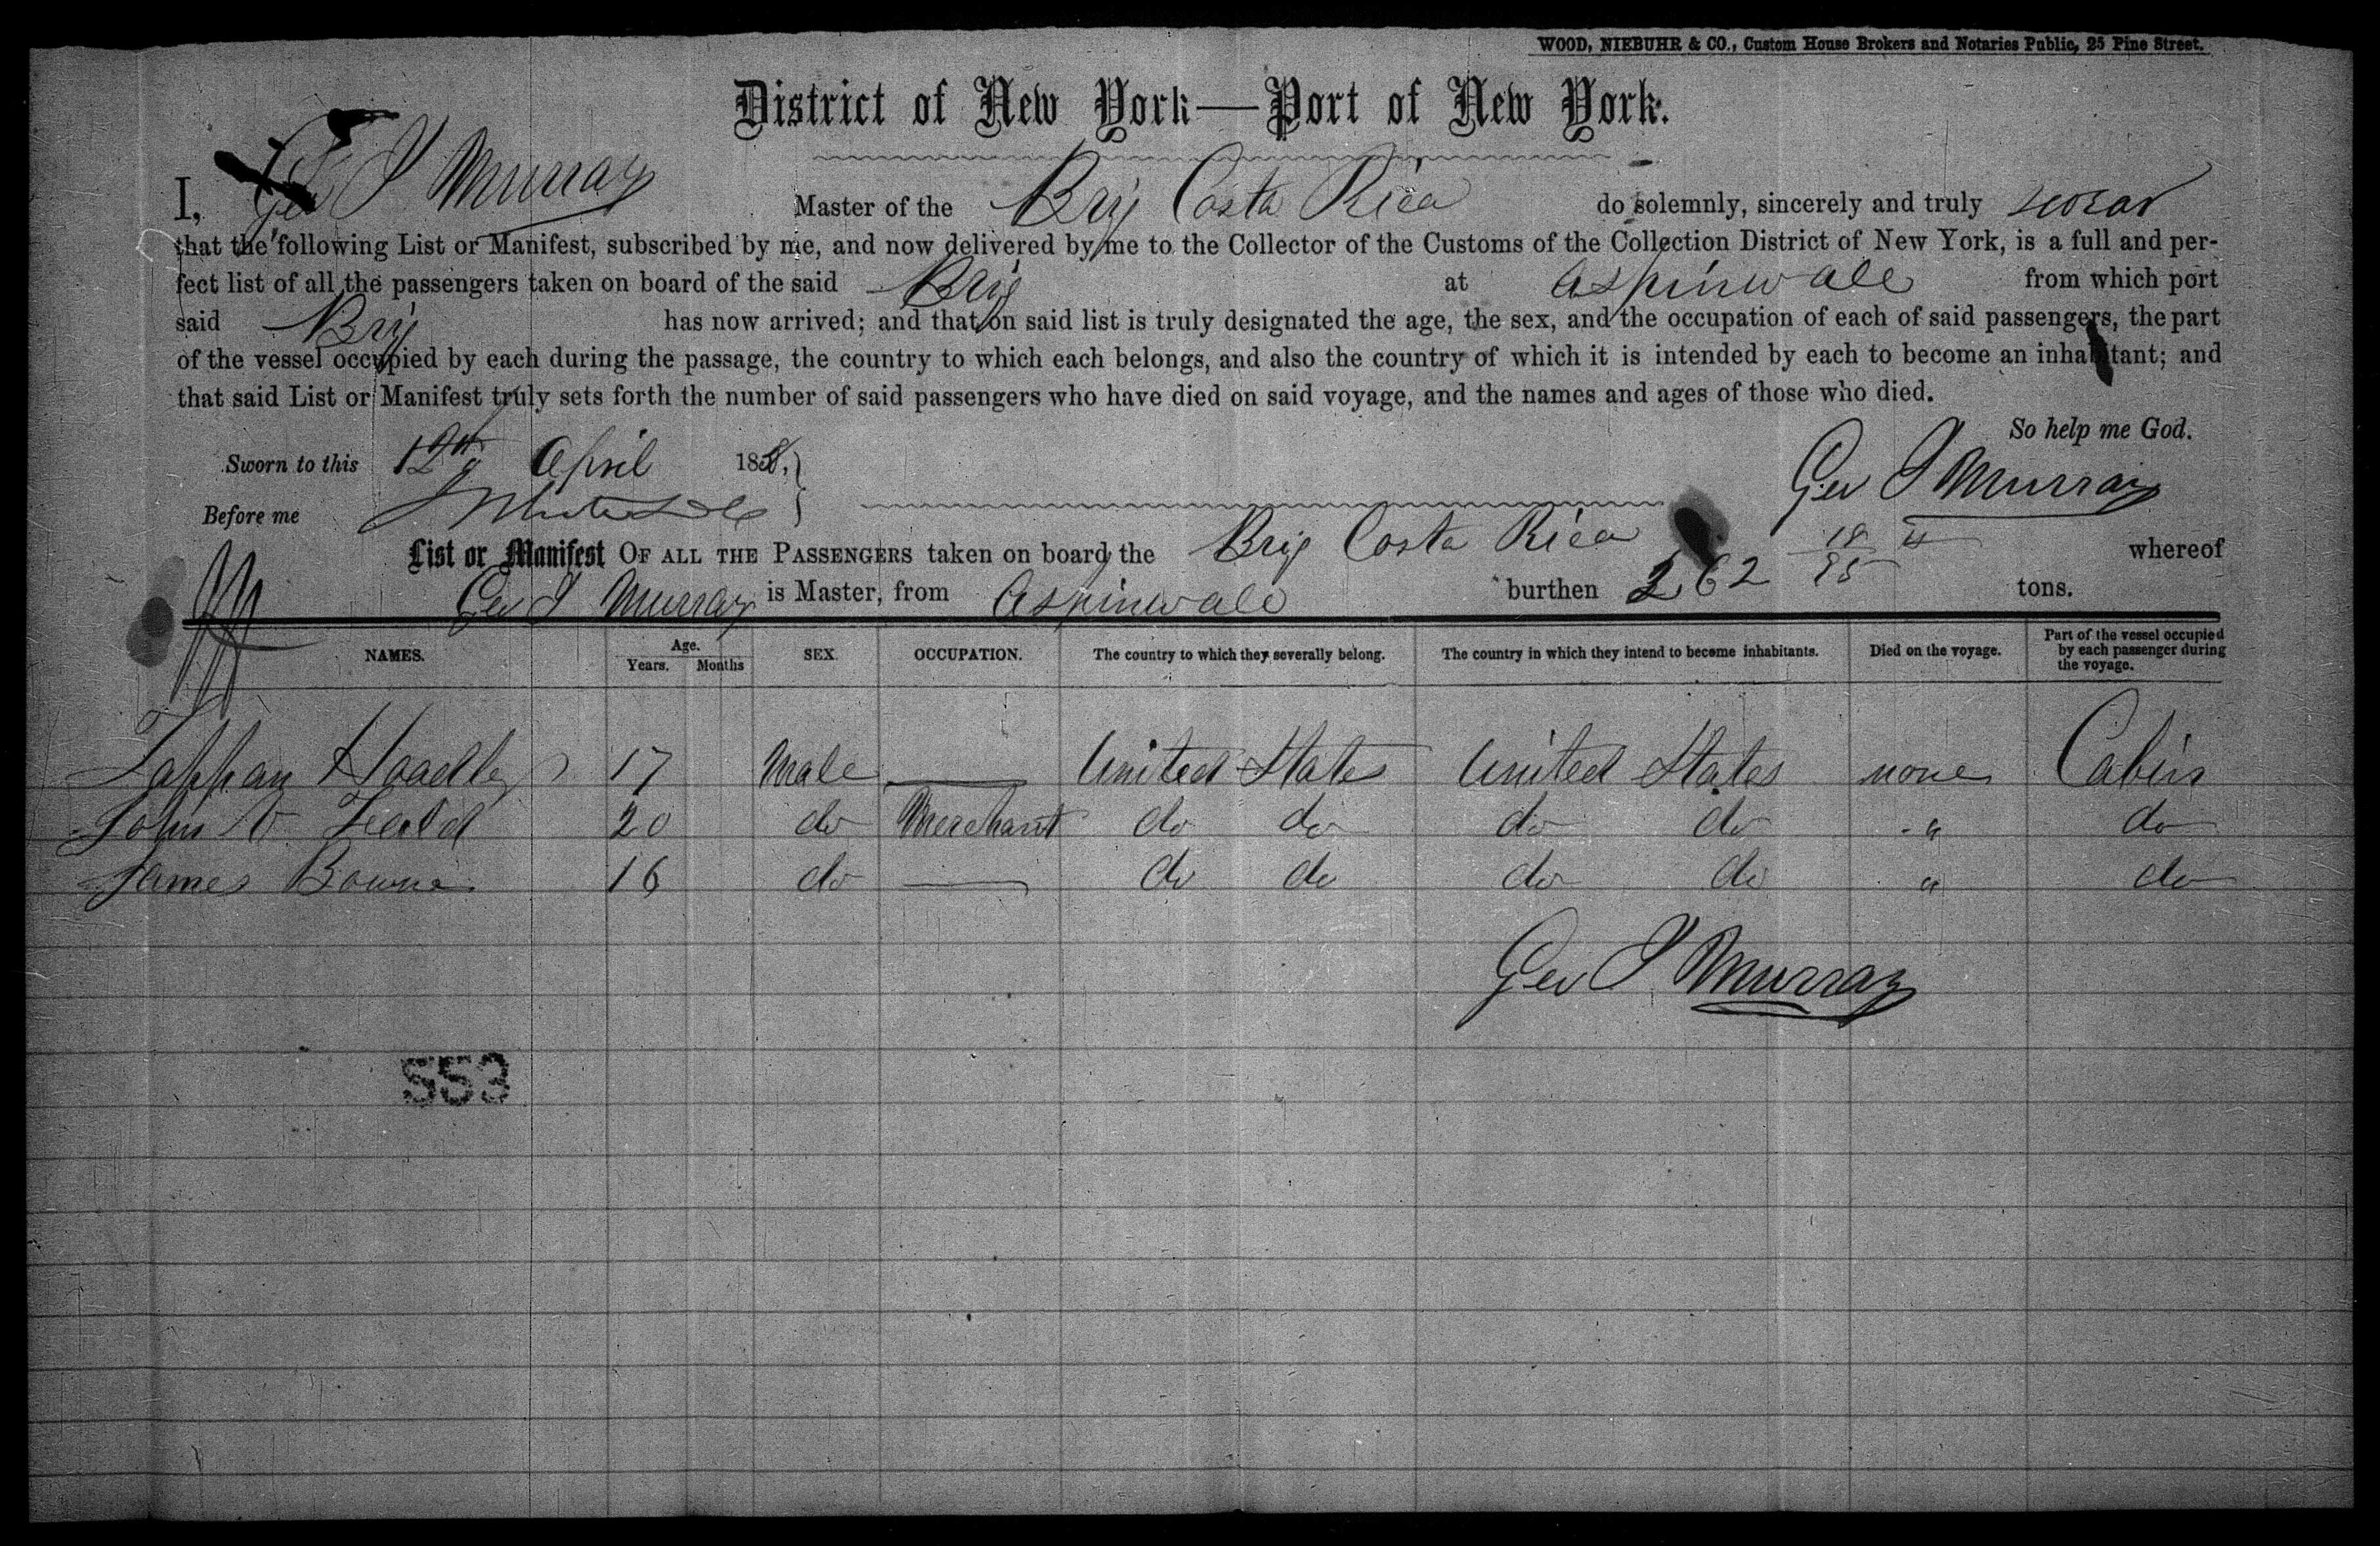 WOOD, NIEBUHR & CO., Custom House Brokers and Notaries Public, 25 Pine Street.
District of New York—Port of New York.
I, Geo J Murray Master of the Brig Costa Rica do solemnly, sincerely and truly swear
that the following List or Manifest, subscribed by me, and now delivered by me to the Collector of the Customs of the Collection District of New York, is a full and per-
fect list of all the passengers taken on board of the said Brig at Aspinwall from which port
said Brig has now arrived; and that on said list is truly designated the age, the sex, and the occupation of each of said passengers, the part
of the vessel occupied by each during the passage, the country to which each belongs, and also the country of which it is intended by each to become an inhabitant; and
that said List or Manifest truly sets forth the number of said passengers who have died on said voyage, and the names and ages of those who died.
So help me God.
Sworn to this 12th April 185
Geo J Murray
Before me
List or Manifest OF ALL THE PASSENGERS taken on board the Brig Costa Rica whereof
Geo J Murray is Master, from Aspinwall burthen 262 18/95 tons.
NAMES. Age. Years. Months SEX. OCCUPATION. The country to which they severally belong. The country in which they intend to become inhabitants. Died on the voyage. Part of the vessel occupied by each passenger during the voyage.
Tappan Hoadley 17 Male — United States United States none Cabin
John V 20 do Merchant do do do do " do
James Bowne 16 do — do do do do " do
Geo J Murray
553